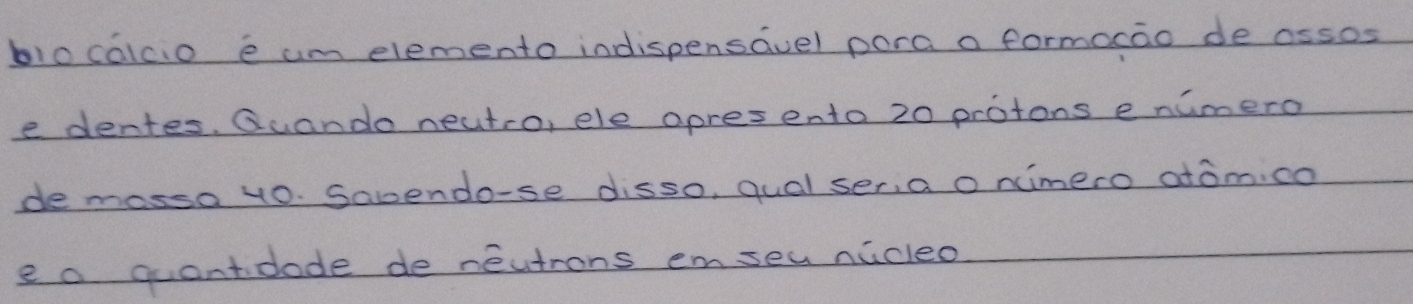 b) o cálcio é um elemento indispensável para a formação de ossos
e dentes. Quando neutro, ele apresenta 20 prótons e número
de massa 40. Sabendo-se disso, qual seria o número atômico
e a quantidade de nêutrons em seu núcleo